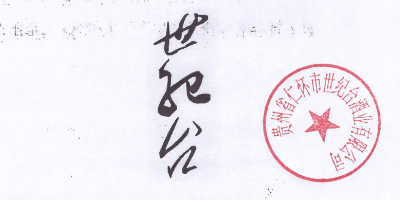 世纪台
贵州省仁怀市世纪台酒业有限公司